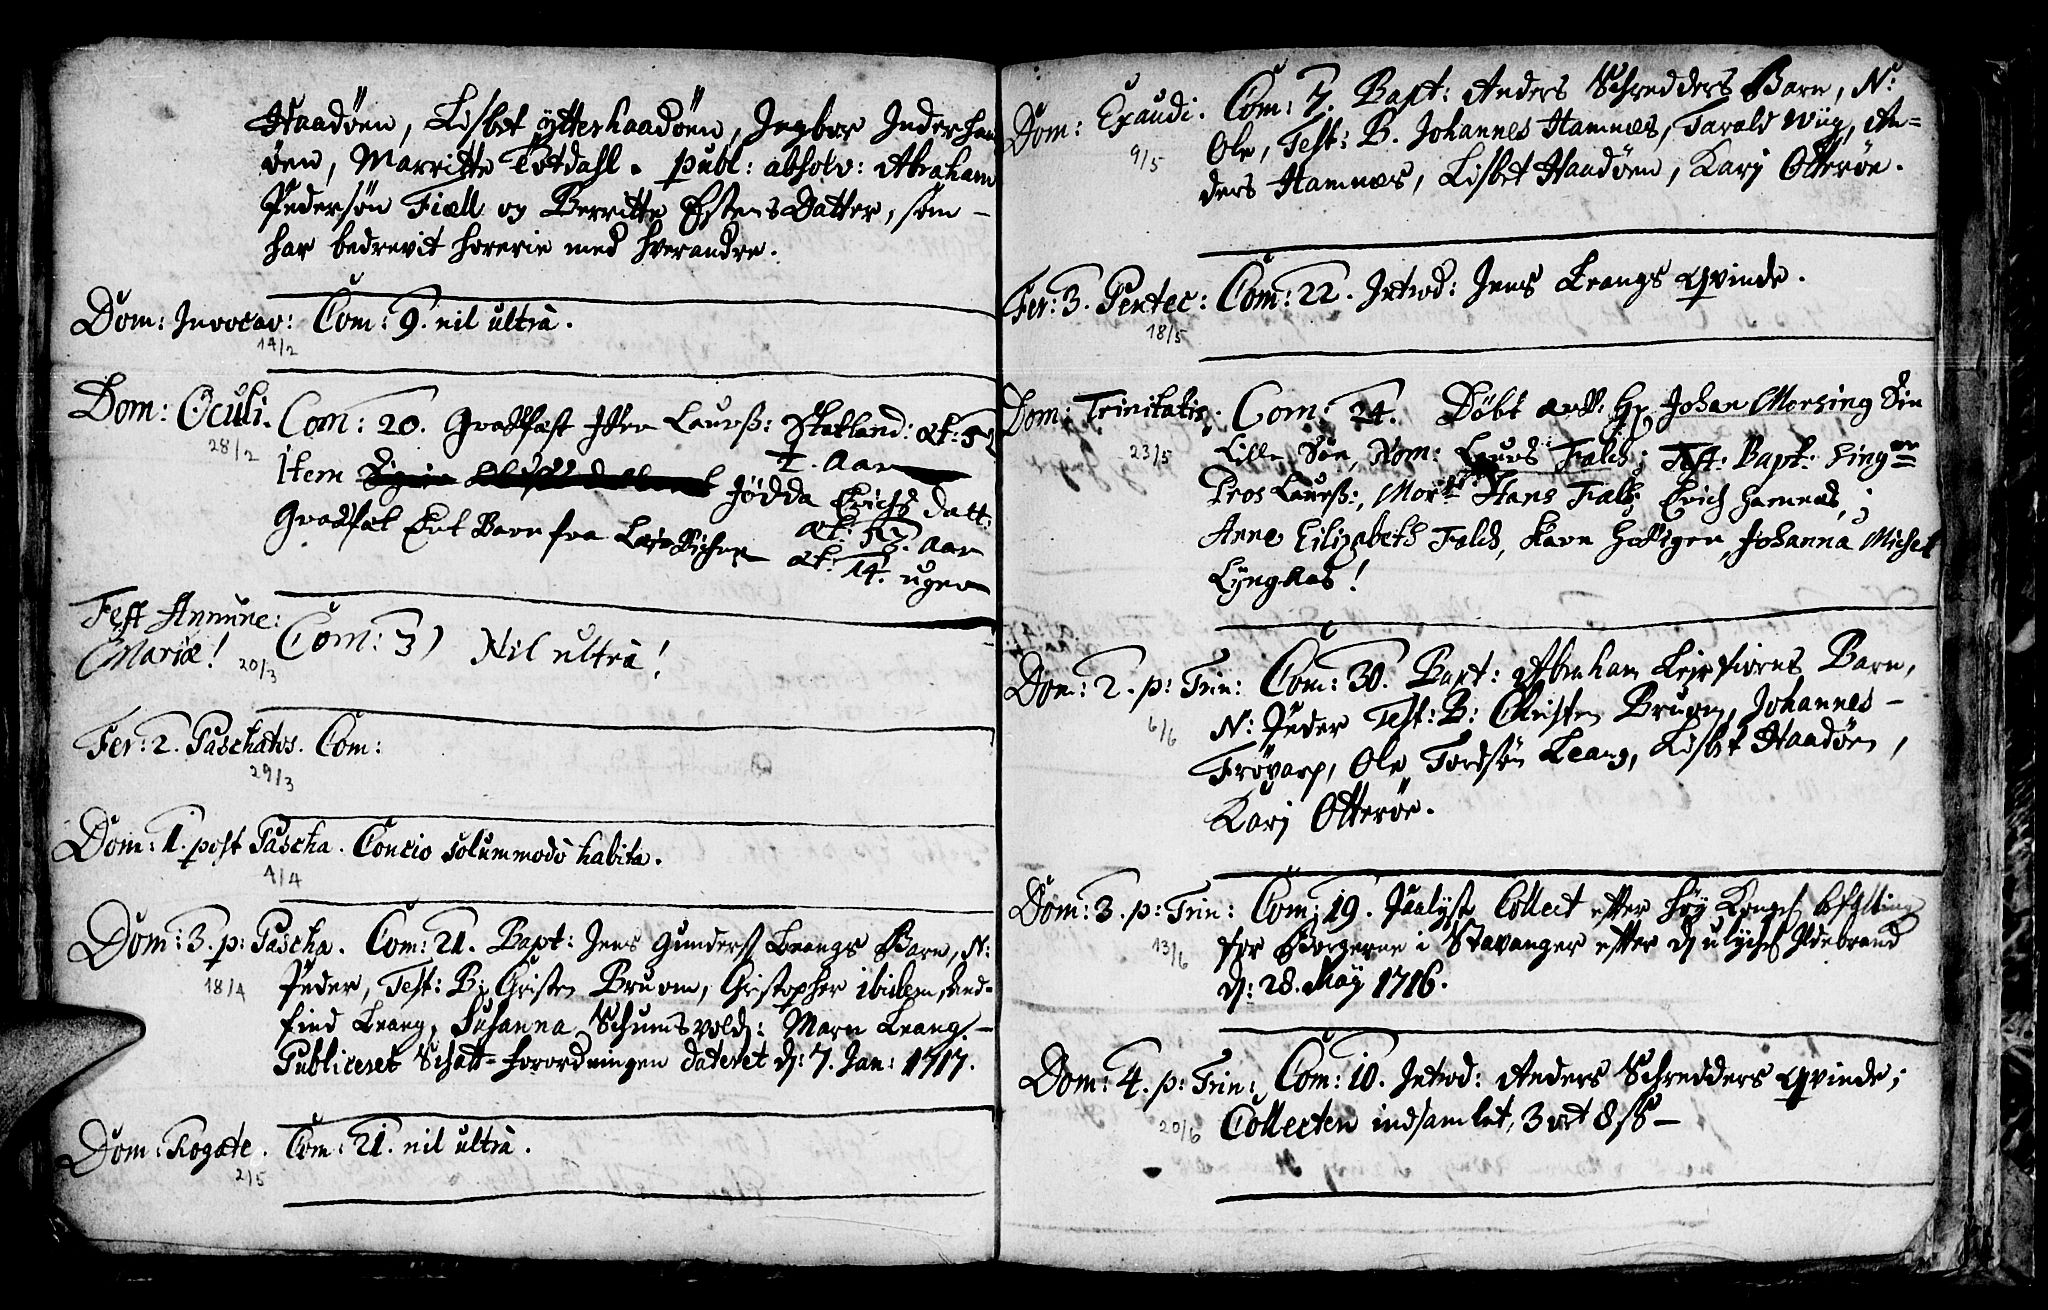 Haadöen, Lisbet ÿtterhaadöen, Ingbor Inderhaa
döen, Marritte Totdahl. publ: absolv: Abraham
Pedersön Fiæll og Berritte EstensDatter, som -
har bedrevit horerie med hverandre.
Dom: Invocav: Com: 9. nil ultrà.
14/2
Dom: Oculi. Com: 20. Grafæst Laurß: æt: 5
28/2
2. Aar
Item Jödda Erichs datt:
æt: 53. Aar
Ent Barn fra æt: 14. uger
Fest Annunc:
Mariæ! Com: 3) Nil ultrà!
20/3
Fer: 2. Paschatos. Com:
29/3
Dom: 1. post Pascha. Concio solummodò habita.
4/4
Dom: 3. p: Pascha. Com: 21. Bapt: Jens Gunders Leangs Barn, N:
18/4
Peder, Test: B: Christen Bruun, Christopher ibidem, And-
find Leang, Susanna Schumsvold: Marn Leang -
Publiceret Schatt-forordningen dateret d: 7. Jan: 1717.
Dom: Rogate. Com: 21. nil ultrà.
2/5
Dom: Exaudi. Com: 7. Bapt: Anders Schredders Barn, N:
9/5
Ole, Test: B. Johannes Hamnes, Tarald Wiig, An-
ders Hamnes, Lisbet Haadöen, Karj Otteröe.
Fer: 3. Pentec: Com: 22. Introd: Jens Leangs qvinde.
18/5
Dom: Trinitatis. Com: 24. Döbt Hr. Johan Morsing Sin
23/5
Lille Sön, Nom: Laurs Falch; Test: Bapt:
Pros Laurß:, Hans Falch, Erich Hamnes,;
Anne Eilizabeth Falch, Karn Johanna Michel
Lÿnghas!
Dom: 2. p: Trin: Com: 30. Bapt: Abraham Leirfiorns Barn,
6/6
N: Peder Test: B: Christen Bruun, Johannes -
Frövarp, Ole Tordsön Leang, Lisbet Haadöen,
Karj Otteröe.
Dom: 3. p: Trin: Com: 19. Paalyst Collect efter höy Kongel befalling
13/6
for Borgerne i Stavanger efter d: ulyckel Ildebrand
d: 28. Maÿ 1716.
Dom: 4. p: Trin: Com: 10. Introd: Anders Schredders qvinde;
20/6
Collecten indsamlet, 3 ort 8 ß -